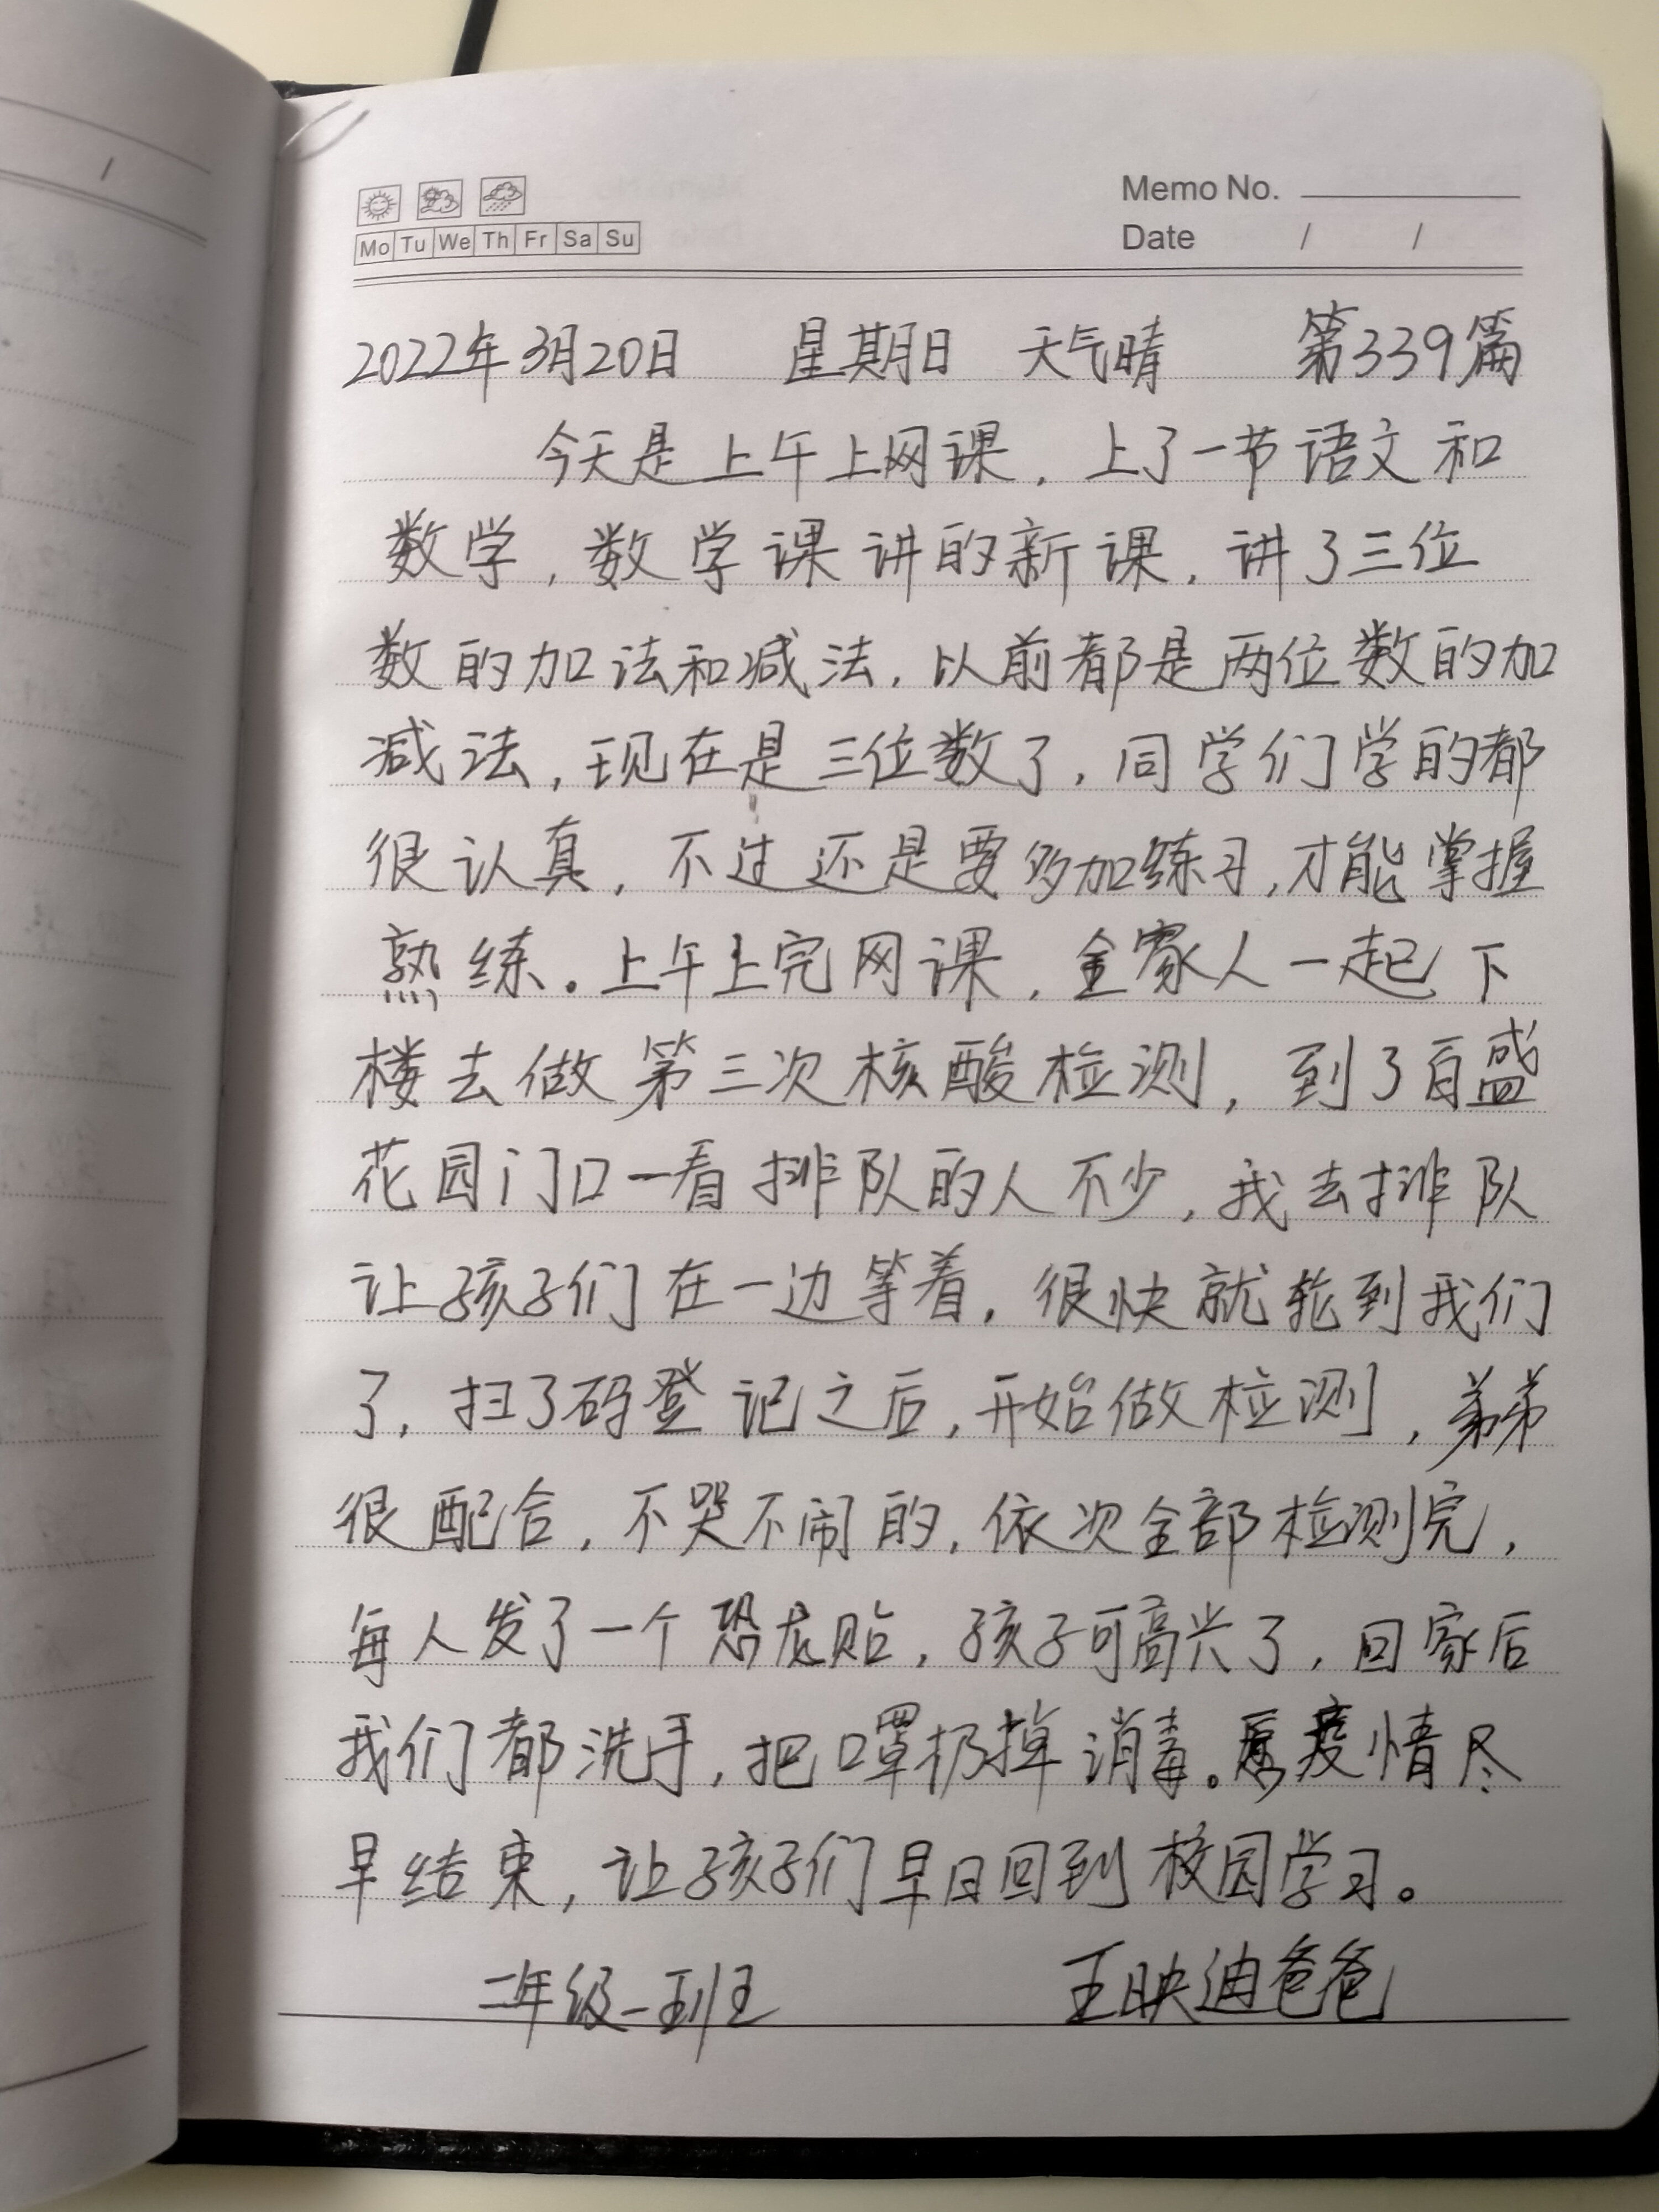 Memo No.
Mo Tu We Th Fr Sa Su
Date / /
2022年3月20日 星期日 天气晴 第339篇
今天是上午上网课，上了一节语文和
数学，数学课讲的新课，讲了三位
数的加法和减法，以前都是两位数的加
减法，现在是三位数了，同学们学的都
很认真，不过还是要多加练习，才能掌握
熟练。上午上完网课，全家人一起下
楼去做第三次核酸检测，到了百盛
花园门口一看排队的人不少，我去排队
让孩子们在一边等着，很快就轮到我们
了，扫了码登记之后，开始做检测，弟弟
很配合，不哭不闹的，依次全部检测完，
每人发了一个恐龙贴，孩子可高兴了，回家后
我们都洗手，把口罩扔掉消毒。愿疫情尽
早结束，让孩子们早日回到校园学习。
二年级一班 王映迪爸爸